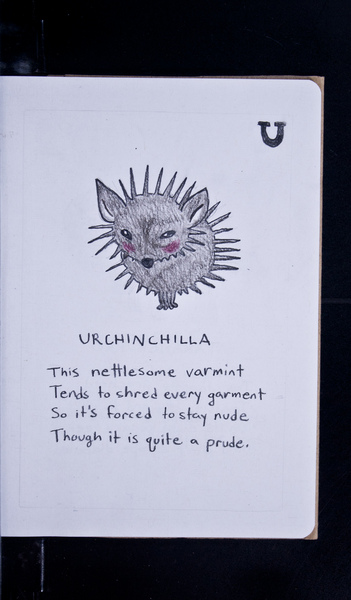 U
URCHINCHILLA
This nettlesome varmint
Tends to shred every garment
So it's forced to stay nude
Though it is quite a prude.